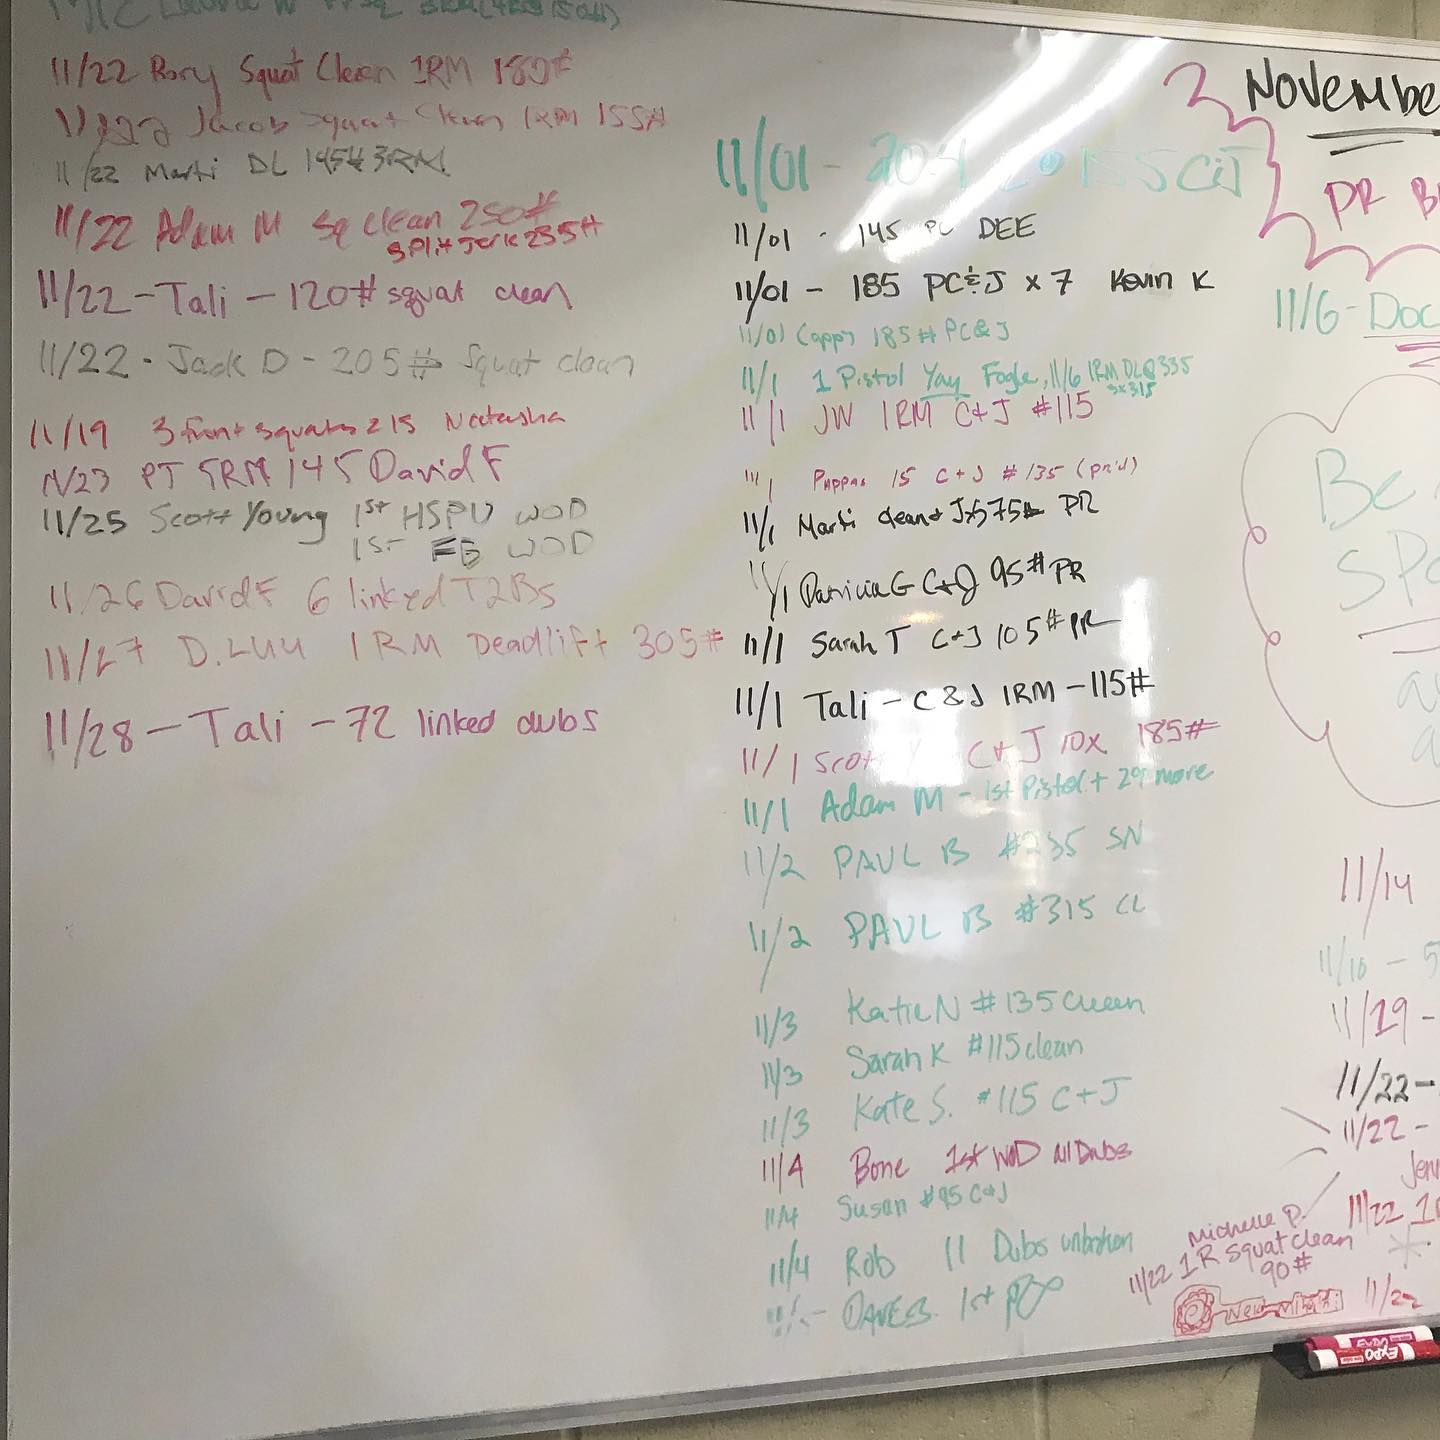 11/22 Rory Squat Clean 1RM 180#
11/22 Jacob squat clean 1RM 155#
11/22 Marti DL 145# 3RM
11/22 Adam M Sq clean 250#
split jerk 235#
11/22 - Tali - 120# squat clean
11/22 - Jack D - 205# squat clean
11/19 3 front squats 215 Natasha
11/23 PT 5RM 145 David F
11/25 Scott Young 1st HSPU WOD
1st WOD
11/26 David F 6 linked T2Bs
11/27 D. Luu 1RM Deadlift 305#
11/28 - Tali - 72 linked dubs
November
PR
11/01 - 155 C&J
11/01 - 145 PC DEE
11/01 - 185 PC&J x 7 Kevin K
11/01 185# PC&J
11/1 1 Pistol Yay Fogle, 11/6 1RM DL @ 335
3x315
11/1 JW 1RM C+J #115
Pappas 15 C+J #135 (pr'd)
11/1 Marti clean + J 75# PR
11/1 Patricia G C+J 95# PR
11/1 Sarah T C+J 105# PR
11/1 Tali - C&J 1RM - 115#
11/1 Scott Y C+J 10x 185#
11/1 Adam M - 1st Pistol + 29 more
11/2 PAUL B #235 SN
11/2 PAUL B #315 CL
11/3 Katie N #135 Clean
11/3 Sarah K #115 clean
11/3 Kate S. #115 C+J
11/4 Bone 1st WOD all Dubs
11/4 Susan #95 C+J
11/4 Rob 11 Dubs unbroken
Dave B. 1st
11/6 - Doc
Be
11/14
11/19 -
11/22 -
11/22 -
Jen
11/22
Michelle P.
11/22 1R Squat clean
90#
11/22
EXPO